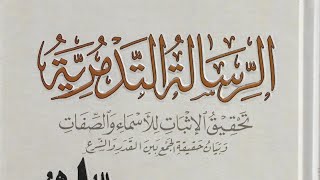 الرِّسَالَةُ التَّدْمُرِيَّةُ
تَحْقِيقُ الإِثْبَاتِ لِلأَسْمَاءِ وَالصِّفَاتِ
وَبَيَانُ حَقِيقَةِ الجَمْعِ بَيْنَ القَدَرِ وَالشَّرْعِ